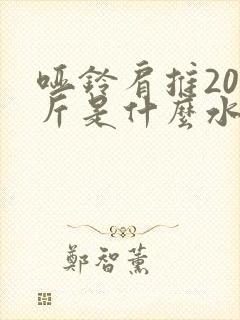 啞鈴肩推20
斤是什麼水
鄭智薰